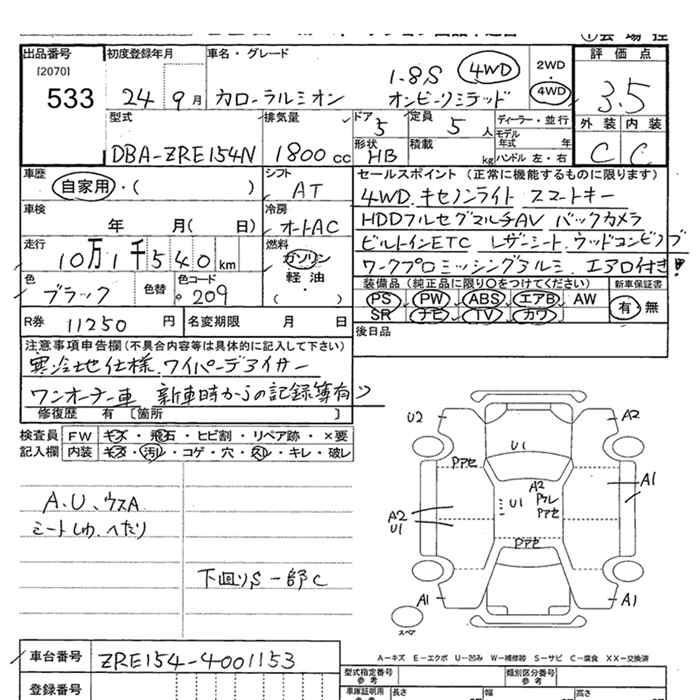 出品番号 初度登録年月 車名・グレード 2WD ・ 4WD 評価点
[2070]
533 24 9月 カローラルミオン 1.8S 4WD オンビーリミテッド 3.5
型式 排気量 ドア 5 定員 5人 ディーラー・並行 外装 内装
DBA-ZRE154N 1800cc 形状 HB 積載 kg モデル年式 年 ハンドル 左・右 C C
車歴 シフト セールスポイント (正常に機能するものに限ります)
自家用・( ) AT 4WD キセノンライト スマートキー
車検 冷房 HDDフルセグマルチAV バックカメラ
年 月( 日) オートAC ビルトインETC レザーシート ウッドコンビ
走行 燃料
10万1千540km ガソリン ワークプロミッシングアルミ エアロ付き
色 色替 色コード 軽油 装備品 (純正品に限り○をつけてください) 新車保証書
ブラック 209 ( ) PS PW ABS エアB AW 有・無
R券 11250円 名変期限 月 日 SR ナビ TV カワ
注意事項申告欄(不具合内容等は具体的に記入して下さい) 後日品
寒冷地仕様 ワイパーデアイサー
ワンオーナー車 新車時からの記録簿有り
修復歴 有 [箇所 ]
検査員 FW キズ・飛石・ヒビ割・リペア跡・×要
記入欄 内装 キズ・汚レ・コゲ・穴・スレ・キレ・破レ
U2 A2
U1
Pアセ
A1
A2
U1 Pアセ
A2
U1
Pアセ
A1 A1
スペア
A.U、ウスA
シートしわ、へたり
下回りS 一部C
A―キズ E―エクボ U―凹み W―補修跡 S―サビ C―腐食 XX―交換済
車台番号 ZRE154-4001153
型式指定番号 参考 類別区分番号 参考
登録番号 車庫証明用 参考 長さ 幅 高さ